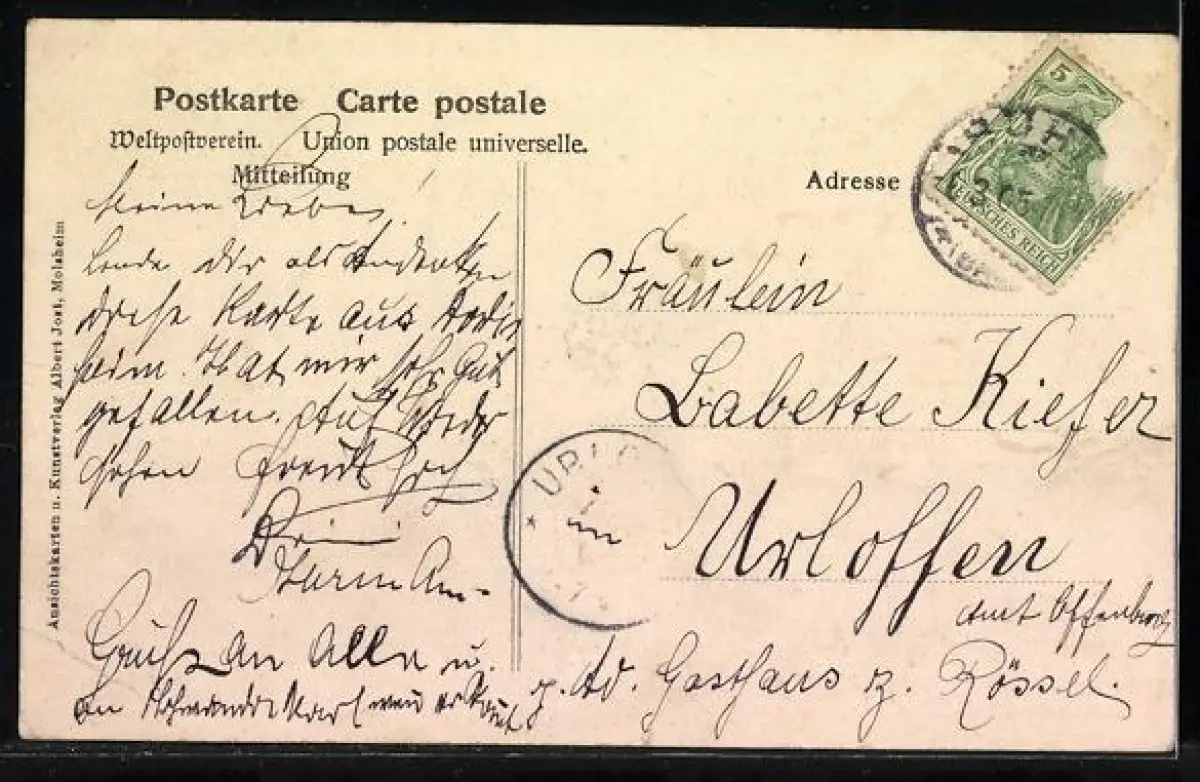 Postkarte Carte postale
Weltpostverein. Union postale universelle.
Mitteilung
Meine Liebe!
Sende dir als Andenken
diese Karte aus
heim. Hat mir sehr gut
gefallen. Auf Wieder
sehen
Gruß an Alle u.
an
Ansichtskarten u. Kunstverlag Albert Jost, Molsheim
Adresse
5
DEUTSCHES REICH
Fräulein
Babette Kiefer
in Urloffen
Amt Offenburg
p. Ad. Gasthaus z. Rössel.